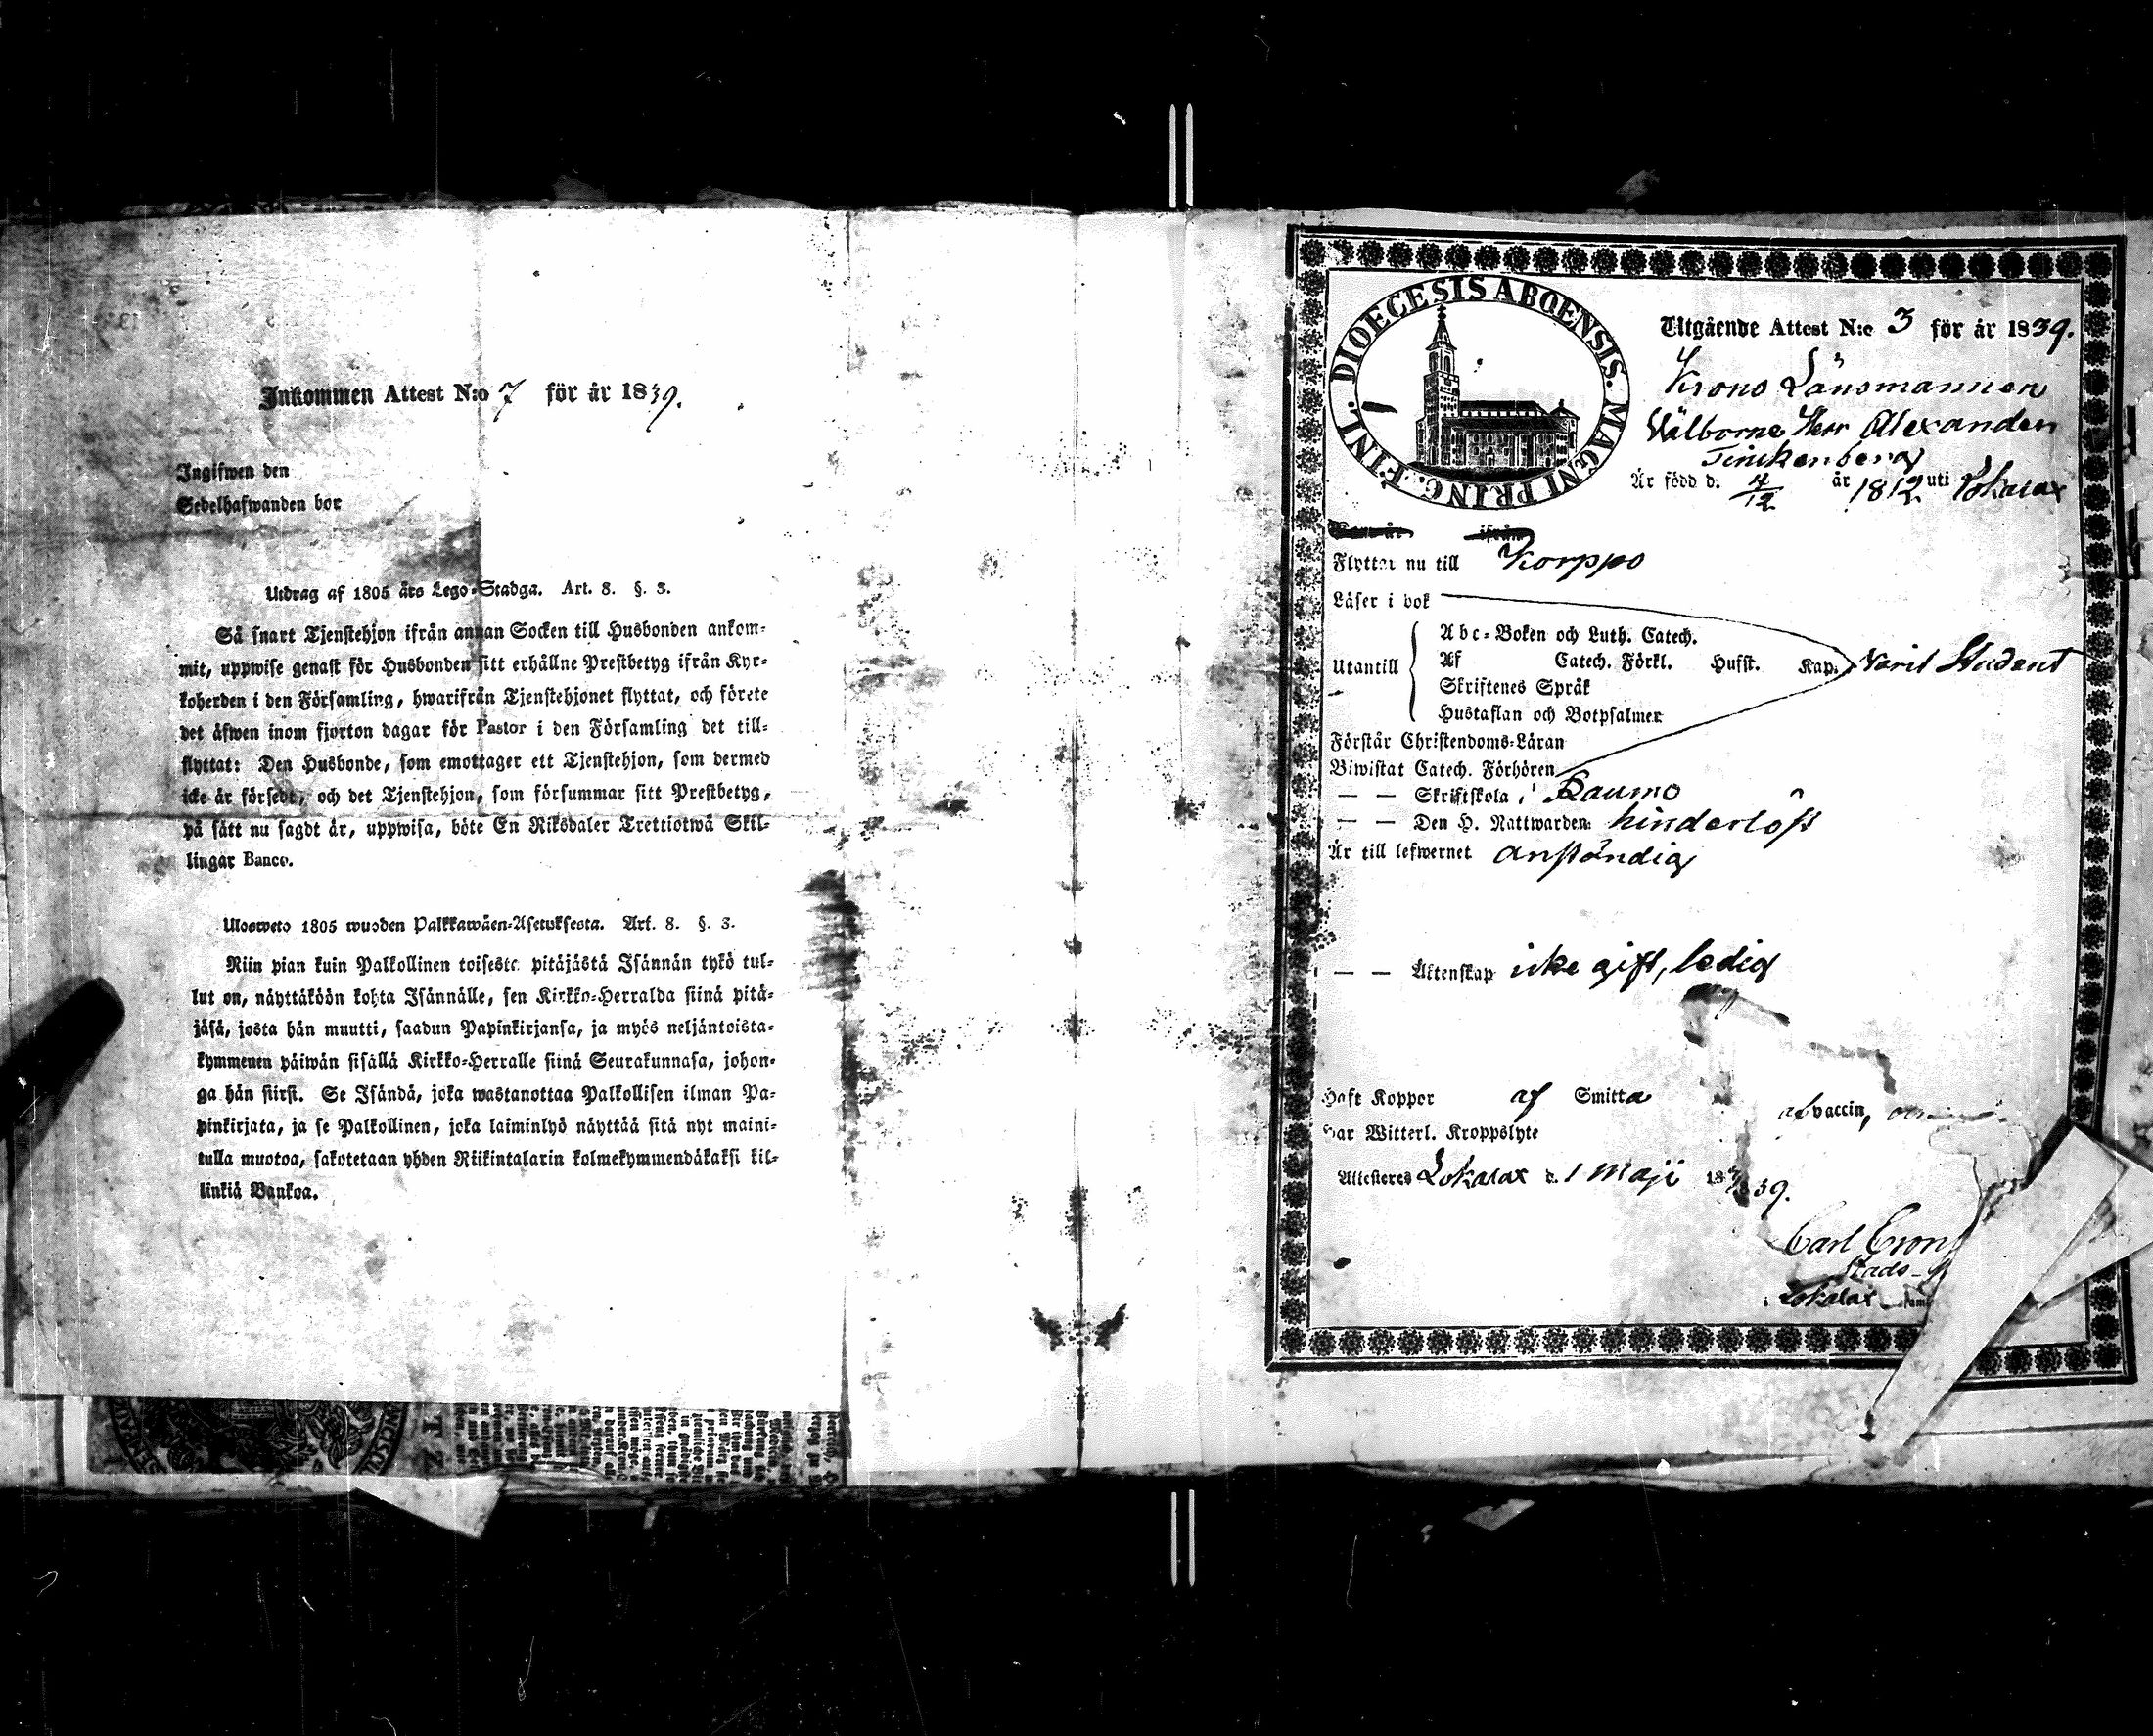 Inkommen Attest N:o 7 för år 1839.
Ingifwen den
Sedelhafwanden bor
Utdrag af 1805 års Lego-Stadga. Art. 8. §. 3.
Så snart Tjenstehjon ifrån annan Socken till Husbonden ankom-
mit, uppwise genast för Husbonden sitt erhållne Prestbetyg ifrån Kyr-
koherden i den Församling, hwarifrån Tjenstehjonet flyttat, och förete
det äfwen inom fjorton dagar för Pastor i den Församling det till-
flyttat: Den Husbonde, som emottager ett Tjenstehjon, som dermed
icke är försedt, och det Tjenstehjon, som försummar sitt Prestbetyg,
på sätt nu sagdt är, uppwisa, böte En Riksdaler Trettiotwå Skil-
lingar Banco.
Ulosweto 1805 wuoden Palkkawäen-Asetuksesta. Art. 8. §. 3.
Niin pian kuin Palkollinen toisesta pitäjästä Isännän tykö tul-
lut on, näyttäköön kohta Isännälle, sen Kirkko-Herralda siinä pitä-
jäsä, josta hän muutti, saadun Papinkirjansa, ja myös neljäntoista-
kymmenen päiwän sisällä Kirkko-Herralle siinä Seurakunnasa, johon-
ga hän siirsi. Se Isändä, joka wastanottaa Palkollisen ilman Pa-
pinkirjata, ja se Palkollinen, joka laiminlyö näyttää sitä nyt maini-
tulla muotoa, sakotetaan yhden Riikintalarin kolmekymmendäkaksi kil-
linkiä Bankoa.
DIOECESIS ABOENSIS. MAGNI PRINC. FINL.
Utgående Attest N:o 3 för år 1839.
Krono Länsmannen
Välborne Herr Alexander
Tinckenberg
Är född d. 4/12 år 1812 uti Lokalax
Flyttar nu till Korppo
Läser i bok
Utantill
Abc-Boken och Luth. Catech.
Af Catech. Förkl. Husst. Kap. Varit Student
Skriftenes Språk
Hustaflan och Botpsalmer
Förstår Christendoms-Läran
Biwistat Catech. Förhören
— — Skriftskola i Raumo
— — Den H. Nattwarden hinderlöst
Är till lefwernet anständig
— — Äktenskap icke gift, ledig
Haft Koppor af Smitta af vaccin,
Har Witterl. Kroppslyte
Attesteres Lokalax d. 1 Maji 1839.
Carl
Stads-
i Lokalax